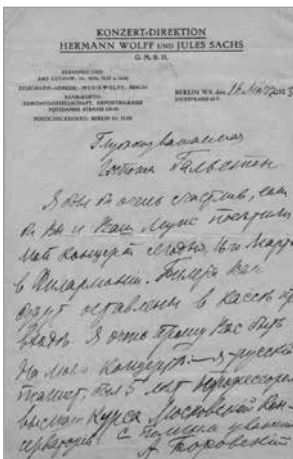 KONZERT-DIREKTION
HERMANN WOLFF UND JULES SACHS
G. M. B. H.
FERNSPRECHER:
TELEGRAMM-ADRESSE: MUSIKWOLFF, BERLIN
BANK-KONTO:
POTSDAMER STRASSE
POSTSCHECKKONTO: BERLIN Nr.
BERLIN W9, den
Глубокоуважаемая
Госпожа Гальстон
Я был бы очень счастлив, если
бы Вы и Ваш муж посетили
мой концерт сегодня, 16го Марта
в Филармонии. Билеты Вам
будут оставлены в кассе при
входе. Я очень прошу Вас быть
на моем концерте — я русский
пианист, был 5 лет профессором
высшего курса Московской Кон-
серватории. С полным уважением
А Боровский